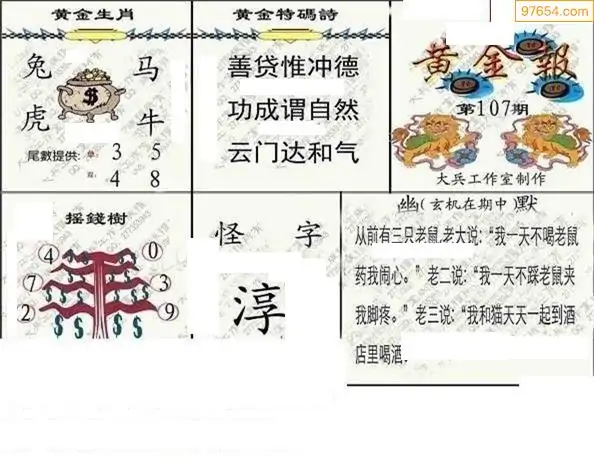 97654.com
黄金生肖
兔 马
虎 牛
尾數提供: 单: 3 5
双: 4 8
黄金特碼詩
善贷惟冲德
功成谓自然
云门达和气
黄金報
第107期
大兵工作室制作
摇錢樹
4 0
7 3
2 9
怪 字
淳
幽(玄机在期中)默
从前有三只老鼠,老大说:“我一天不喝老鼠
药我闹心。”老二说:“我一天不踩老鼠夹
我脚疼。”老三说:“我和猫天天一起到酒
店里喝酒